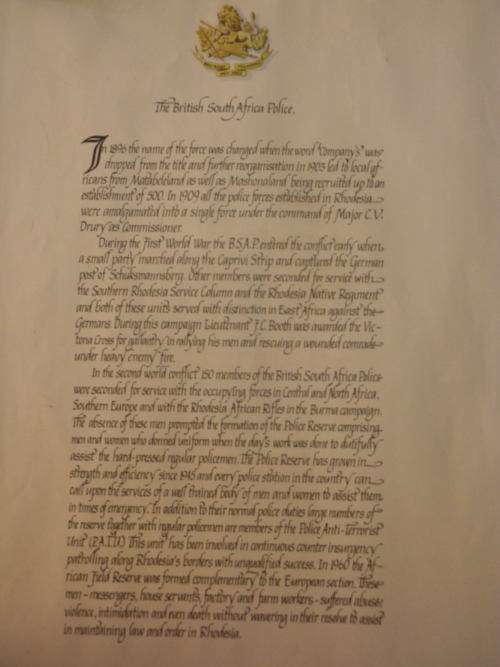 The British South Africa Police.
In 1896 the name of the force was changed when the word "Company's" was
dropped from the title and further reorganisation in 1903 led to local af-
ricans from Matabeleland as well as Mashonaland being recruited up to an
establishment of 500. In 1909 all the police forces established in Rhodesia
were amalgamated into a single force under the command of Major C.V.
Drury as Commissioner.
During the First World War the B.S.A.P. entered the conflict early when
a small party marched along the Caprivi Strip and captured the German
post of Schuksmannsberg. Other members were seconded for service with
the Southern Rhodesia Service Column and the Rhodesia Native Regiment
and both of these units served with distinction in East Africa against the
Germans. During this campaign Lieutenant F.C. Booth was awarded the Vic-
toria Cross for gallantry in rallying his men and rescuing a wounded comrade
under heavy enemy fire.
In the second world conflict 150 members of the British South Africa Police
were seconded for service with the occupying forces in Central and North Africa,
Southern Europe and with the Rhodesia African Rifles in the Burma campaign.
The absence of these men prompted the formation of the Police Reserve comprising
men and women who donned uniform when the day's work was done to dutifully
assist the hard-pressed regular policemen. The Police Reserve has grown in
strength and efficiency since 1945 and every police station in the country can
call upon the services of a well trained body of men and women to assist them
in times of emergency. In addition to their normal police duties large numbers of
the reserve together with regular policemen are members of the Police Anti-Terrorist
Unit (P.A.T.U.) This unit has been involved in continuous counter insurgency
patrolling along Rhodesia's borders with unqualified success. In 1960 the Af-
rican Field Reserve was formed complementary to the European section. These
men - messengers, house servants, factory and farm workers - suffered abuse,
violence, intimidation and even death without wavering in their resolve to assist
in maintaining law and order in Rhodesia.